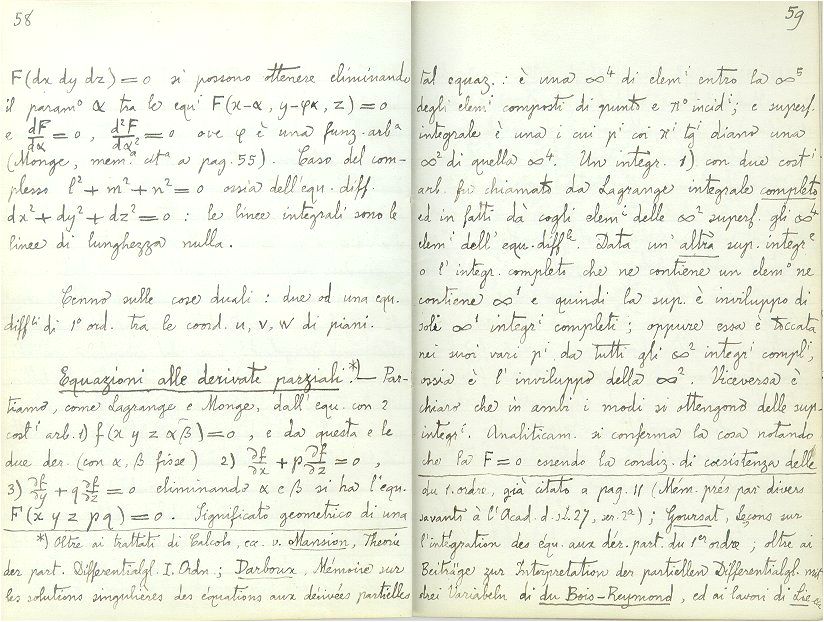 58
F(dx dy dz) = 0 si possono ottenere eliminando
il param° α tra le equⁱ F(x-α, y-φα, z) = 0
e dF/dα = 0, d²F/dα² = 0 ove φ è una funz. arbª
(Monge, mem.ª citª a pag. 55). Caso del com-
plesso l² + m² + n² = 0 ossia dell'equ. diff.
dx² + dy² + dz² = 0 : le linee integrali sono le
linee di lunghezza nulla.
Cenno sulle cose duali : due od una equ.
diffˡⁱ di 1° ord. tra le coord. u, v, w di piani.
Equazioni alle derivate parziali.*) — Par-
tiamo, come Lagrange e Monge, dall'equ. con 2
costⁱ arb. 1) f(x y z α β) = 0, e da questa e le
due der. (con α, β fisse) 2) ∂f/∂x + p ∂f/∂z = 0,
3) ∂f/∂y + q ∂f/∂z = 0 eliminando α e β si ha l'equ.
F(x y z p q) = 0. Significato geometrico di una
*) Oltre ai trattati di Calcolo, ec. v. Mansion, Theorie
der part. Differentialgl. I. Ordn.; Darboux, Mémoire sur
les solutions singulières des équations aux dérivées partielles
59
tal equaz. : è una ∞⁴ di elemⁱ entro la ∞⁵
degli elemⁱ composti di punto e π° incidⁱ; e superf.
integrale è una i cui pⁱ coi πⁱ tgⁱ diano una
∞² di quella ∞⁴. Un integr. 1) con due costⁱ
arb. fu chiamato da Lagrange integrale completo
ed in fatti dà cogli elemⁱ delle ∞² superf. gli ∞⁴
elemⁱ dell'equ. diffˡᵉ. Data un'altra sup. integrᵉ
o l'integr. completo che ne contiene un elem° ne
contiene ∞¹ e quindi la sup. è inviluppo di
soli ∞¹ integrⁱ completi; oppure essa è toccata
nei suoi vari pⁱ da tutti gli ∞² integrⁱ compli,
ossia è l'inviluppo della ∞². Viceversa è
chiaro che in ambi i modi si ottengono delle sup.
integrⁱ. Analiticam. si conferma la cosa notando
che la F = 0 essendo la condiz. di coesistenza delle
du 1. ordre, già citato a pag. 11 (Mém. prés par divers
savants à l'Acad. d. sc. 27, ser. 2ª); Goursat, Leçons sur
l'intégration des équ. aux dér. part. du 1ᵉʳ ordre; oltre ai
Beiträge zur Interpretation der partiellen Differentialgl. mit
drei Variabeln di du Bois-Reymond, ed ai lavori di Lie